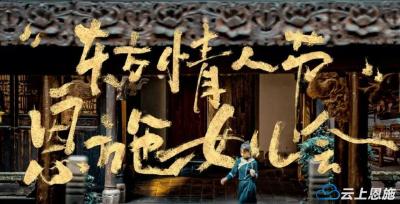 东方情人节
恩施女儿会
云上恩施